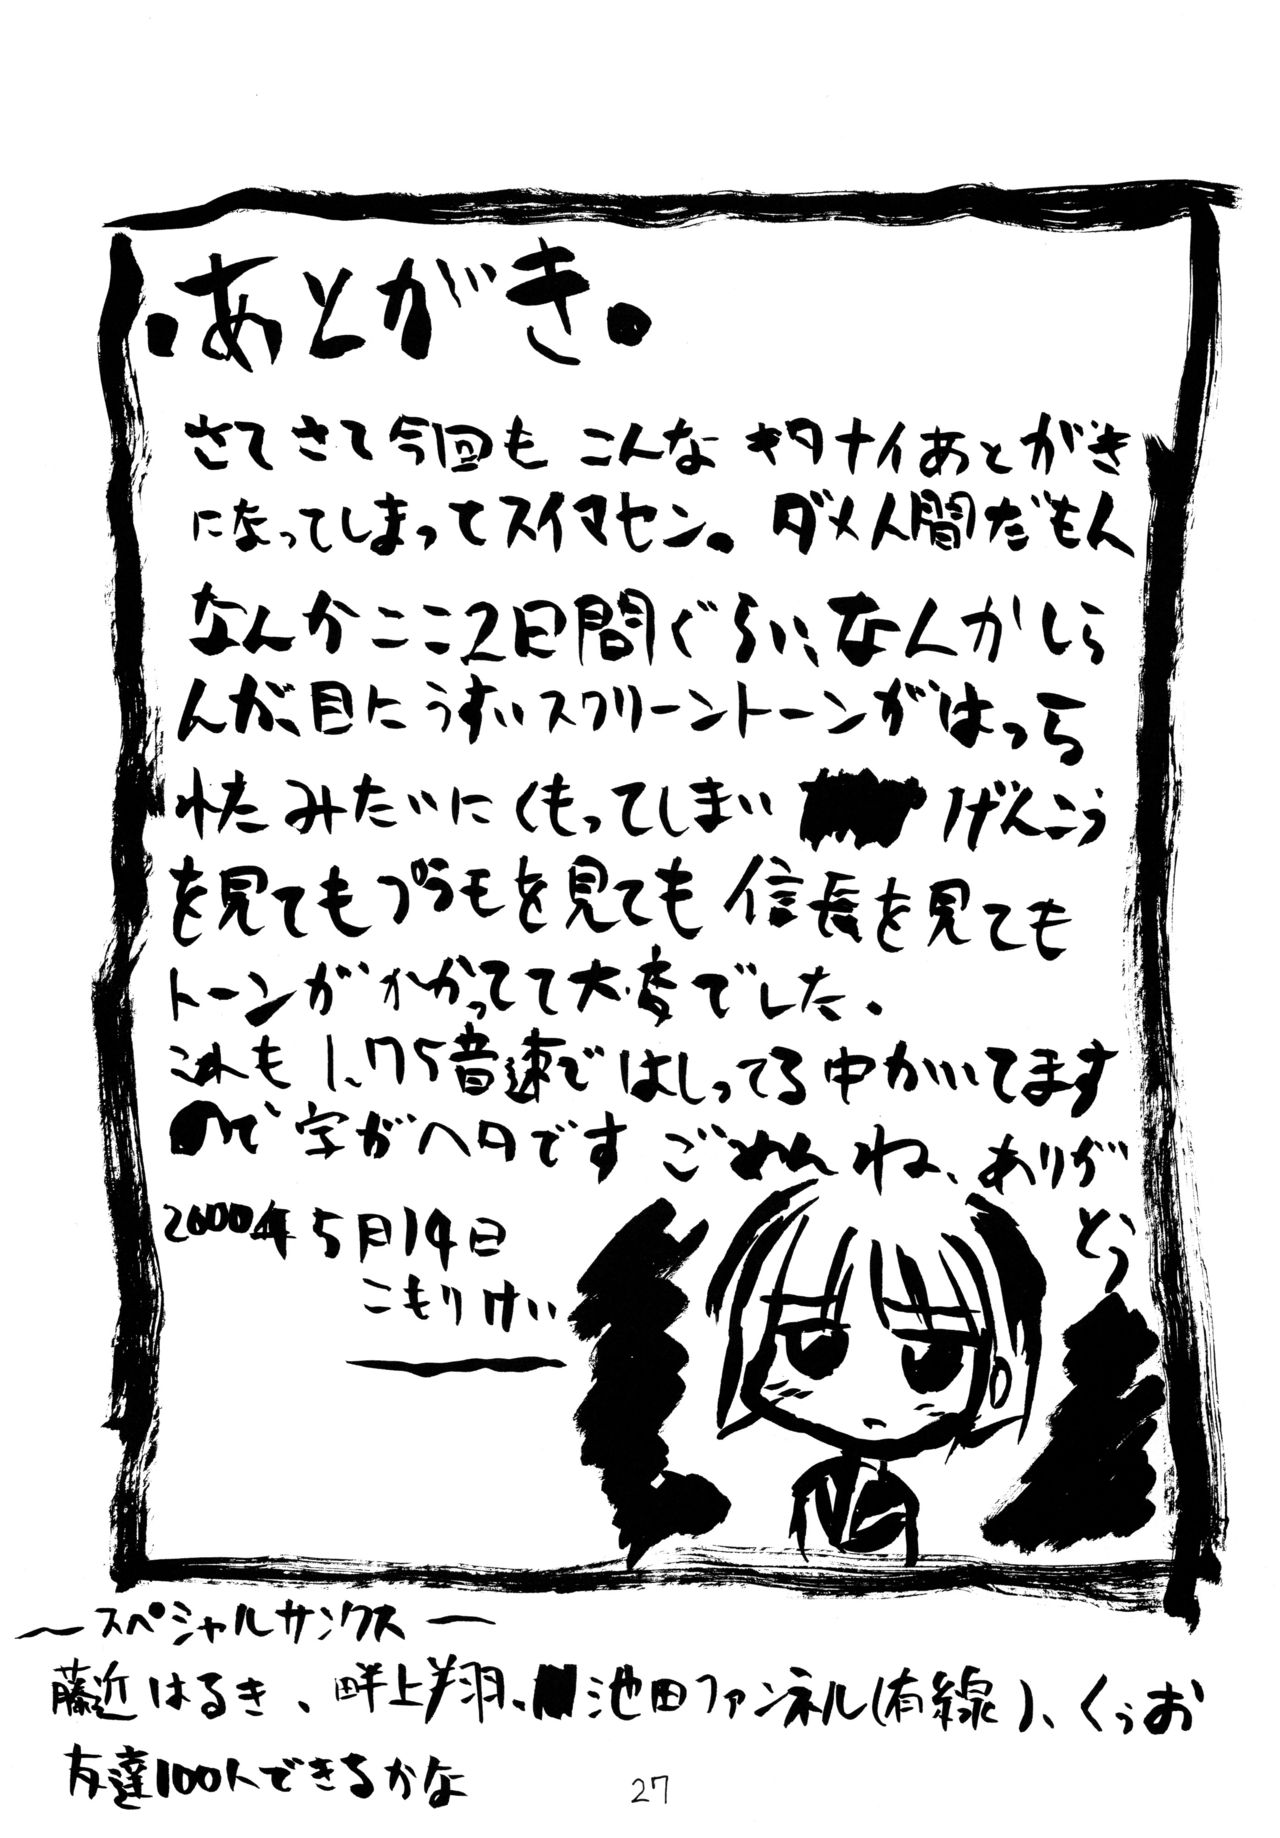 .あとがき.
さてさて今回も こんな キタナイあとがき
になってしまってスイマセン。ダメ人間だもん
なんかここ2日間ぐらい、なんかしら
んが、目にうすいスクリーントーンがはっら
れたみたいにくもってしまい げんこう
を見てもプラモを見ても 信長を見ても
トーンが かかってて大変でした。
これも 1.75音速ではしってる中かいてます
ので 字がヘタです ごめんね、ありが
とう
2000年5月14日
こもりけい
〜スペシャルサンクス〜
藤近はるき、畔上翔、池田ファンネル(有線)、くぅお
友達100人できるかな
27